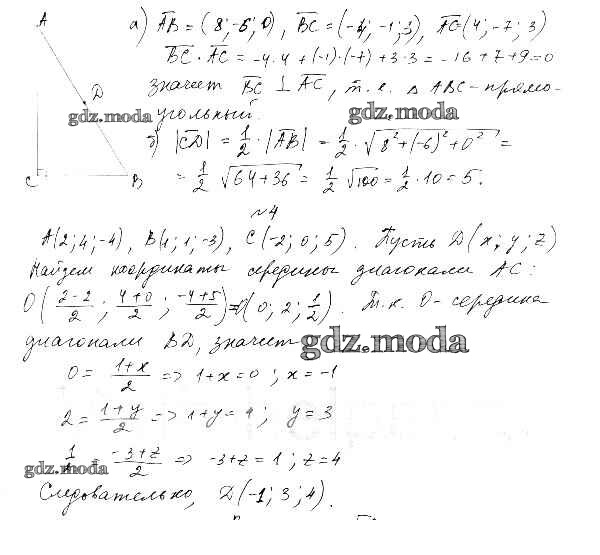 A
а) AB = (8; -6; 0), BC = (-4; -1; 3), AC = (4; -7; 3)
BC · AC = -4·4 + (-1)·(-7) + 3·3 = -16 + 7 + 9 = 0
значит BC ⊥ AC, т.е. Δ ABC - прямо-
D
угольный.
gdz.moda
gdz.moda
б) |CD| = 1/2 · |AB| = 1/2 · √8² + (-6)² + 0² =
C
B
= 1/2 √64 + 36 = 1/2 √100 = 1/2 · 10 = 5.
№4
A(2; 4; -4), B(1; 1; -3), C(-2; 0; 5). Пусть D(x; y; z)
Найдем координаты середины диагонали AC:
O(2-2/2; 4+0/2; -4+5/2) = O(0; 2; 1/2). Т.к. O - середина
диагонали BD, значит
gdz.moda
0 = 1+x/2 => 1+x = 0; x = -1
2 = 1+y/2 => 1+y = 4; y = 3
-3+z/2 => -3+z = 1; z = 4
gdz.moda
Следовательно, D(-1; 3; 4).